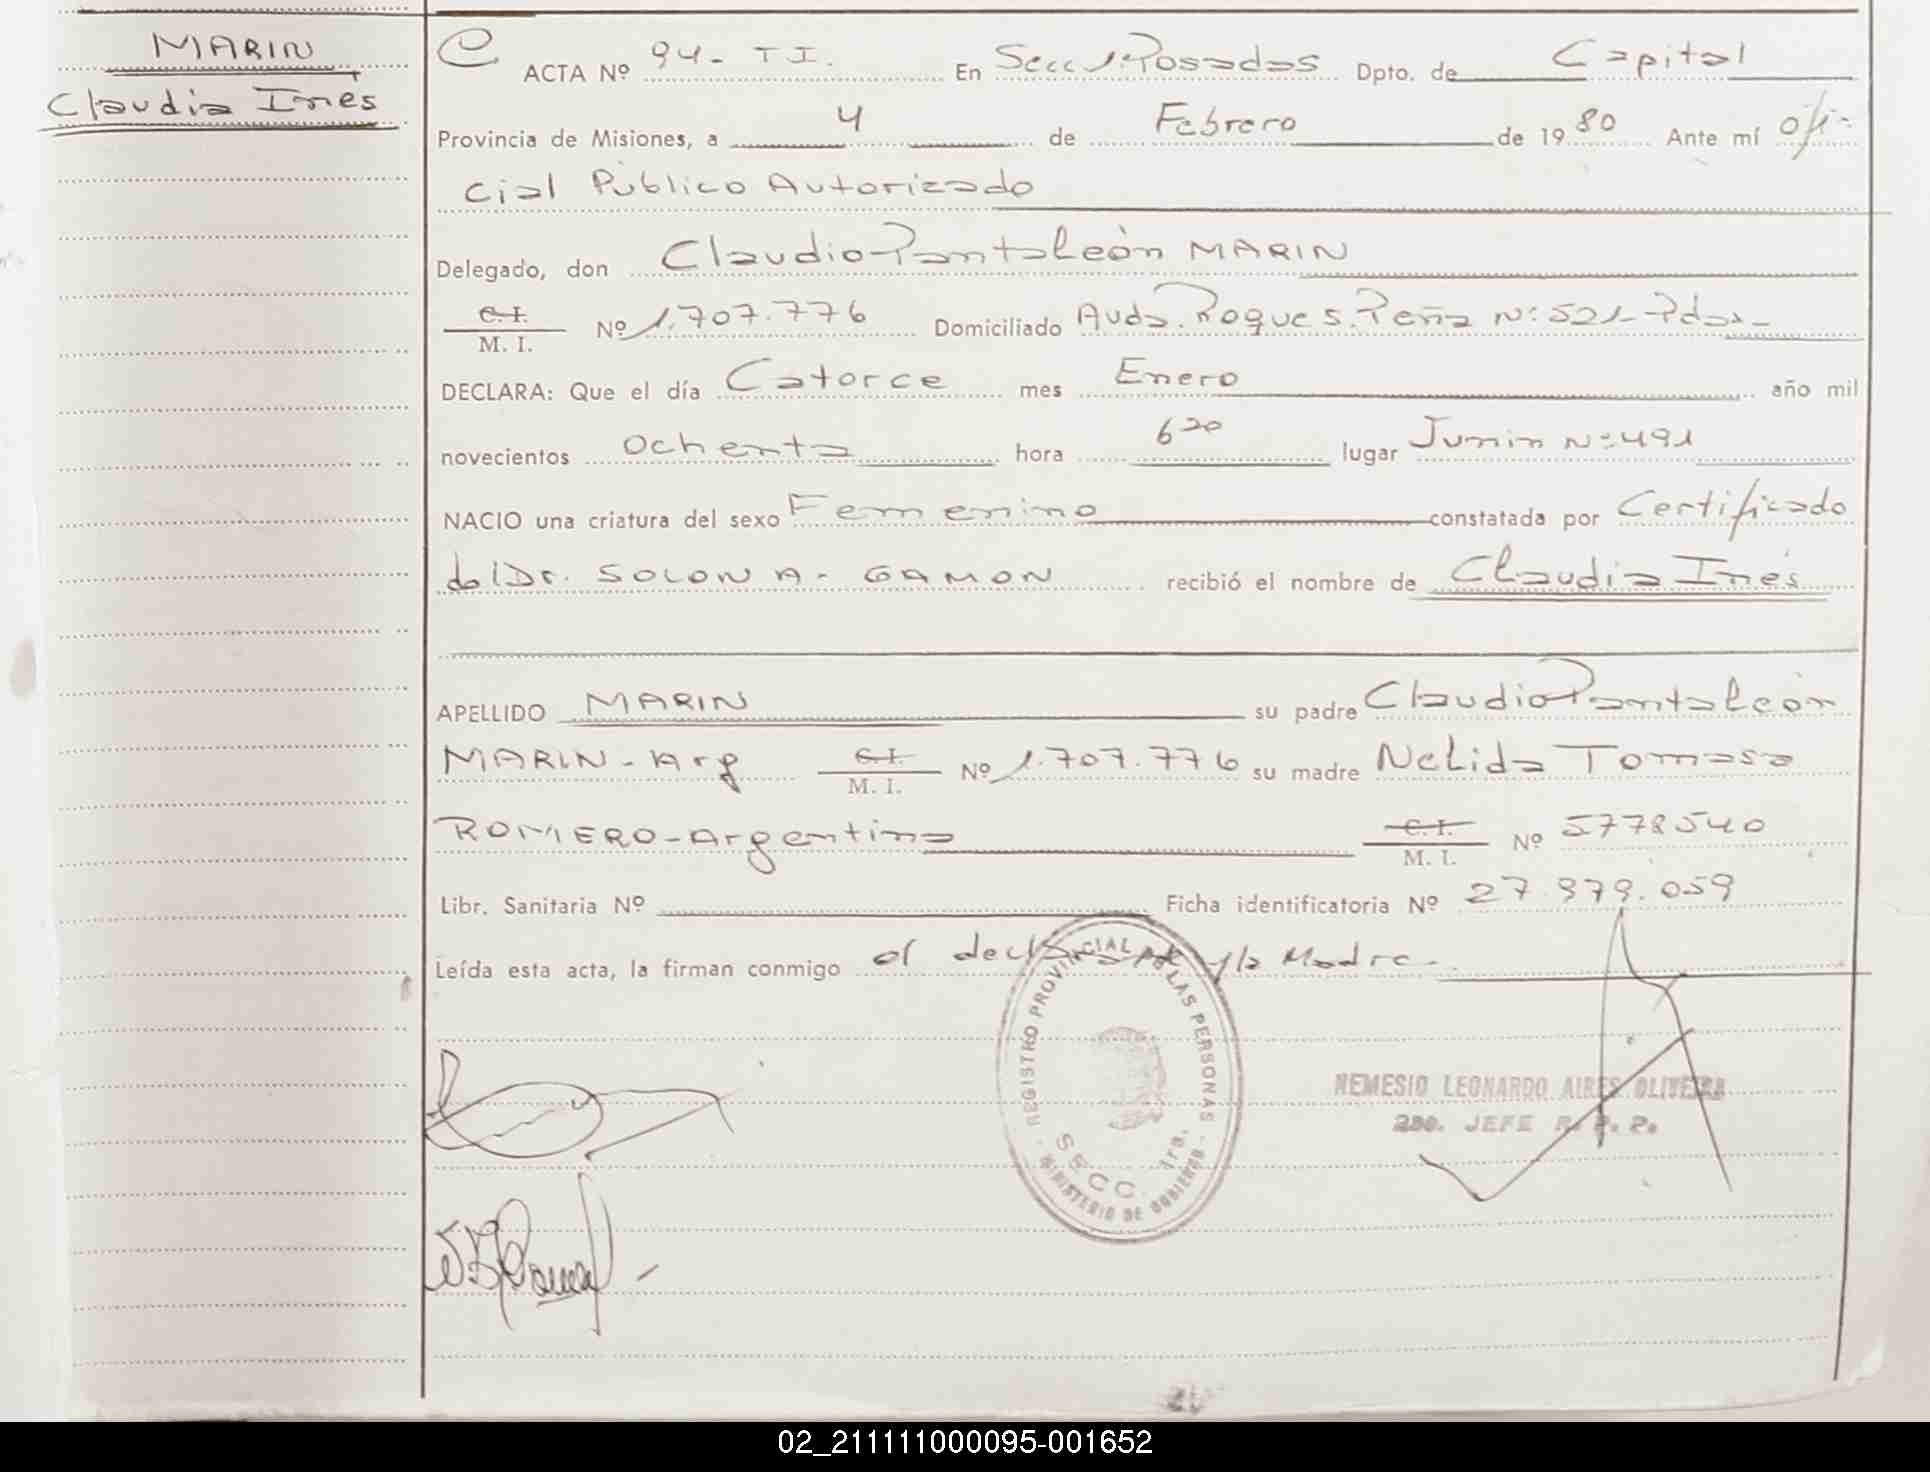 MARIN
Claudia Ines
ACTA Nº 94- T I. En Secc 1ª Posadas Dpto. de Capital
Provincia de Misiones, a 4 de Febrero de 1980 Ante mí ofi-
cial Público Autorizado
Delegado, don Claudio Pantaleón MARIN
C. I.
M. I. Nº 1.707.776 Domiciliado Avda. Roque S. Peña Nº 521-Pdas-
DECLARA: Que el día Catorce mes Enero año mil
novecientos Ochenta hora 6 20 lugar Junin Nº 491
NACIO una criatura del sexo Femenino constatada por Certificado
del Dr. SOLON A. GAMON recibió el nombre de Claudia Inés
APELLIDO MARIN su padre Claudio Pantaleón
MARIN - Arg C. I. M. I. Nº 1.707.776 su madre Nelida Tomasa
ROMERO-Argentina C. I. M. I. Nº 5778540
Libr. Sanitaria Nº Ficha identificatoria Nº 27.979.059
Leída esta acta, la firman conmigo el declarante y la Madre-
REGISTRO PROVINCIAL DE LAS PERSONAS
SECC. 1ra.
MINISTERIO DE GOBIERNO
NEMESIO LEONARDO AIRES OLIVEIRA
2do. JEFE R. P. P.
02_211111000095-001652